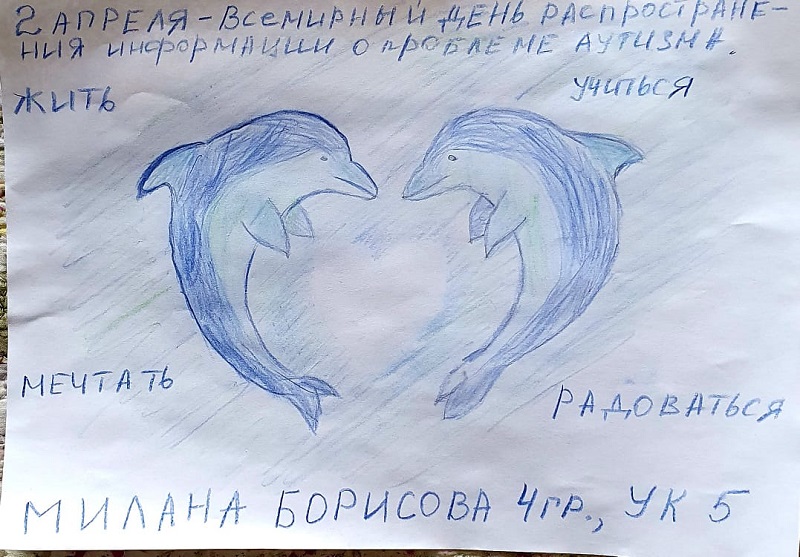 2 АПРЕЛЯ - ВСЕМИРНЫЙ ДЕНЬ РАСПРОСТРАНЕ-
НИЯ ИНФОРМАЦИИ О ПРОБЛЕМЕ АУТИЗМА.
ЖИТЬ
УЧИТЬСЯ
МЕЧТАТЬ
РАДОВАТЬСЯ
МИЛАНА БОРИСОВА 4гр., УК 5